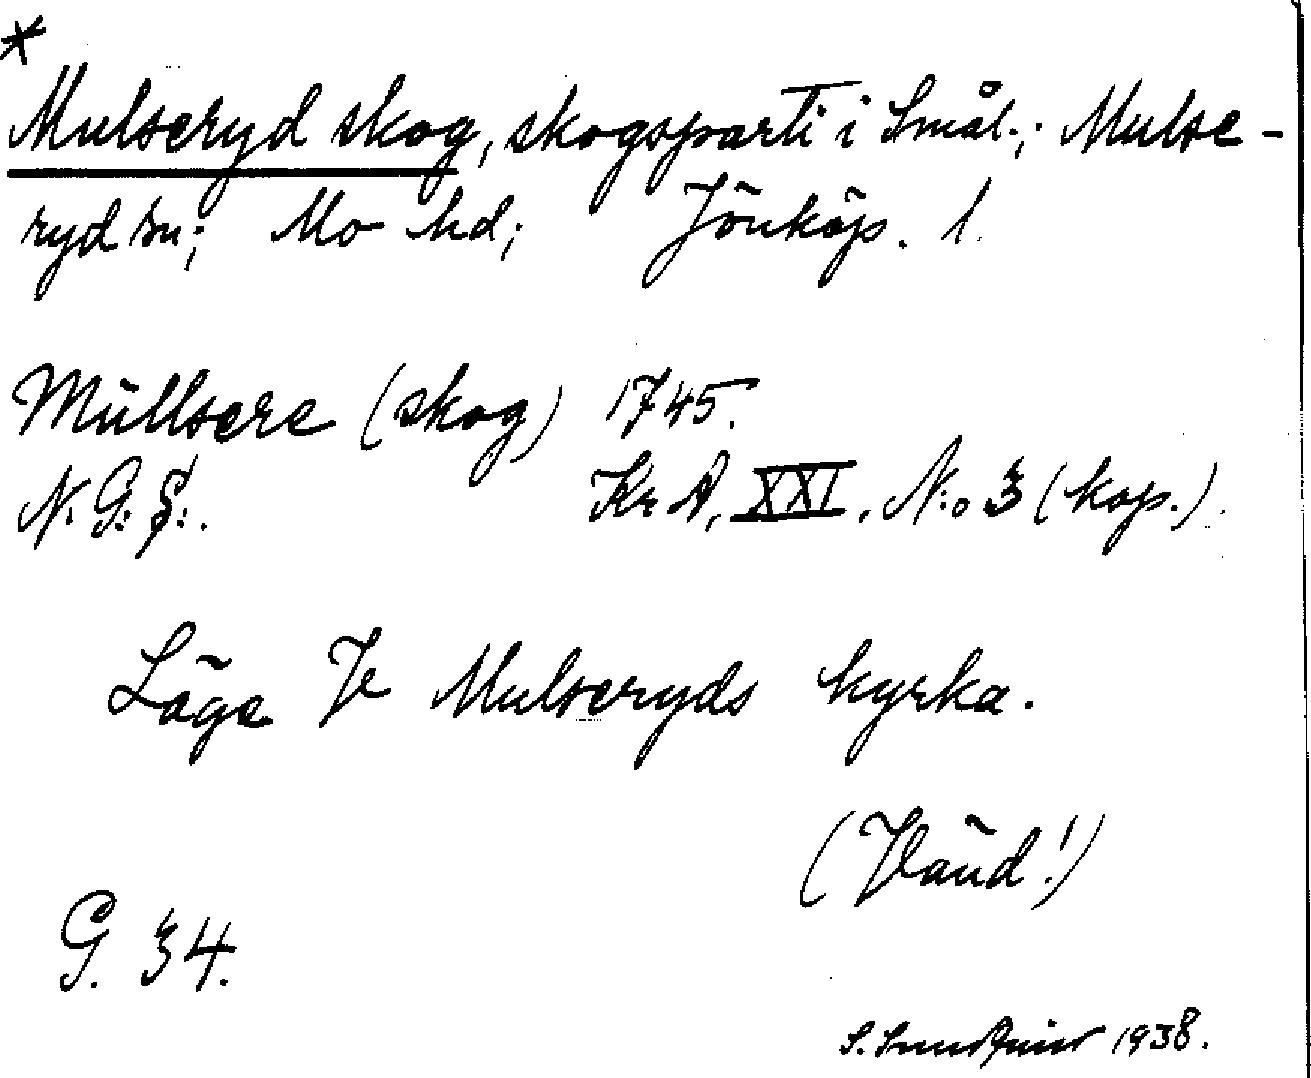 *
Mulseryd skog, skogsparti i Smål.; Mulse-
ryd sn; Mo hd; Jönköp. l.
Müllsere (skog) 1745.
N: G: §:. Kr A, XXI, N:o 3 (kop.).
Läge Mulseryds kyrka.
(Vänd!)
G. 34.
S. 1938.